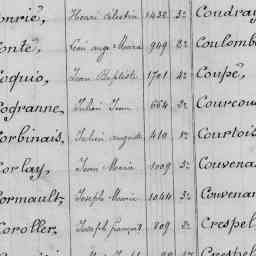 onrié, Henri Célestin 1432 3e Coudray
onté, 949 2e Coulomb
oquio, Jean Baptiste 1701 4e Coupé,
ogranne, Julien Jean 664 2e Courcou
orbinais, Julien Auguste 410 1e Courtois
orlay, Jean Marie 1009 3e Couvena
ormault, Joseph Marie 1044 3e Couvenan
oroller, Joseph François 809 2e Crespel
Crespel